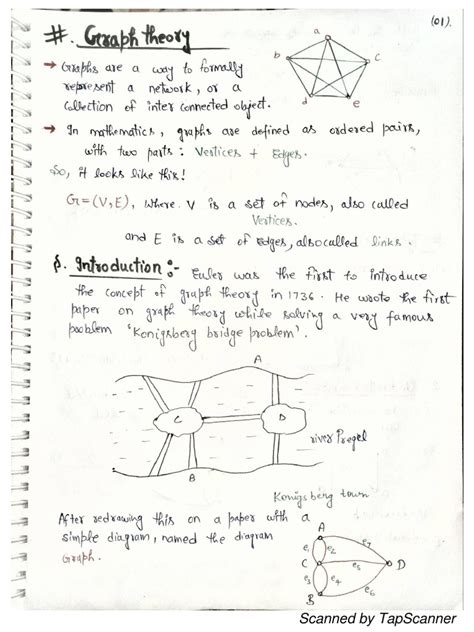 (01).
#. Graph theory
a
b
c
d
e
→ Graphs are a way to formally
represent a network, or a
Collection of inter connected object.
→ In mathematics, graphs are defined as ordered pairs,
with two parts: Vertices + Edges.
So, it looks like this!
G=(V,E), Where V is a set of nodes, also called
Vertices.
and E is a set of Edges, also called links.
§. Introduction :- Euler was the first to introduce
the concept of graph theory in 1736. He wrote the first
paper on graph theory while solving a very famous
problem 'Konigsberg bridge problem'.
A
C
D
river Pregel
B
Konigsberg town
After redrawing this on a paper with a
simple diagram, named the diagram
Graph.
A
e1 e2 e7
C e5 D
e3 e4 e6
B
Scanned by TapScanner